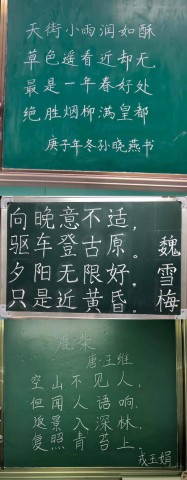 天街小雨润如酥
草色遥看近却无
最是一年春好处
绝胜烟柳满皇都
庚子年冬孙晓燕书
向晚意不适，
驱车登古原。
夕阳无限好，
只是近黄昏。
魏雪梅
鹿柴
唐·王维
空山不见人，
但闻人语响。
返景入深林，
复照青苔上。
戎玉娟